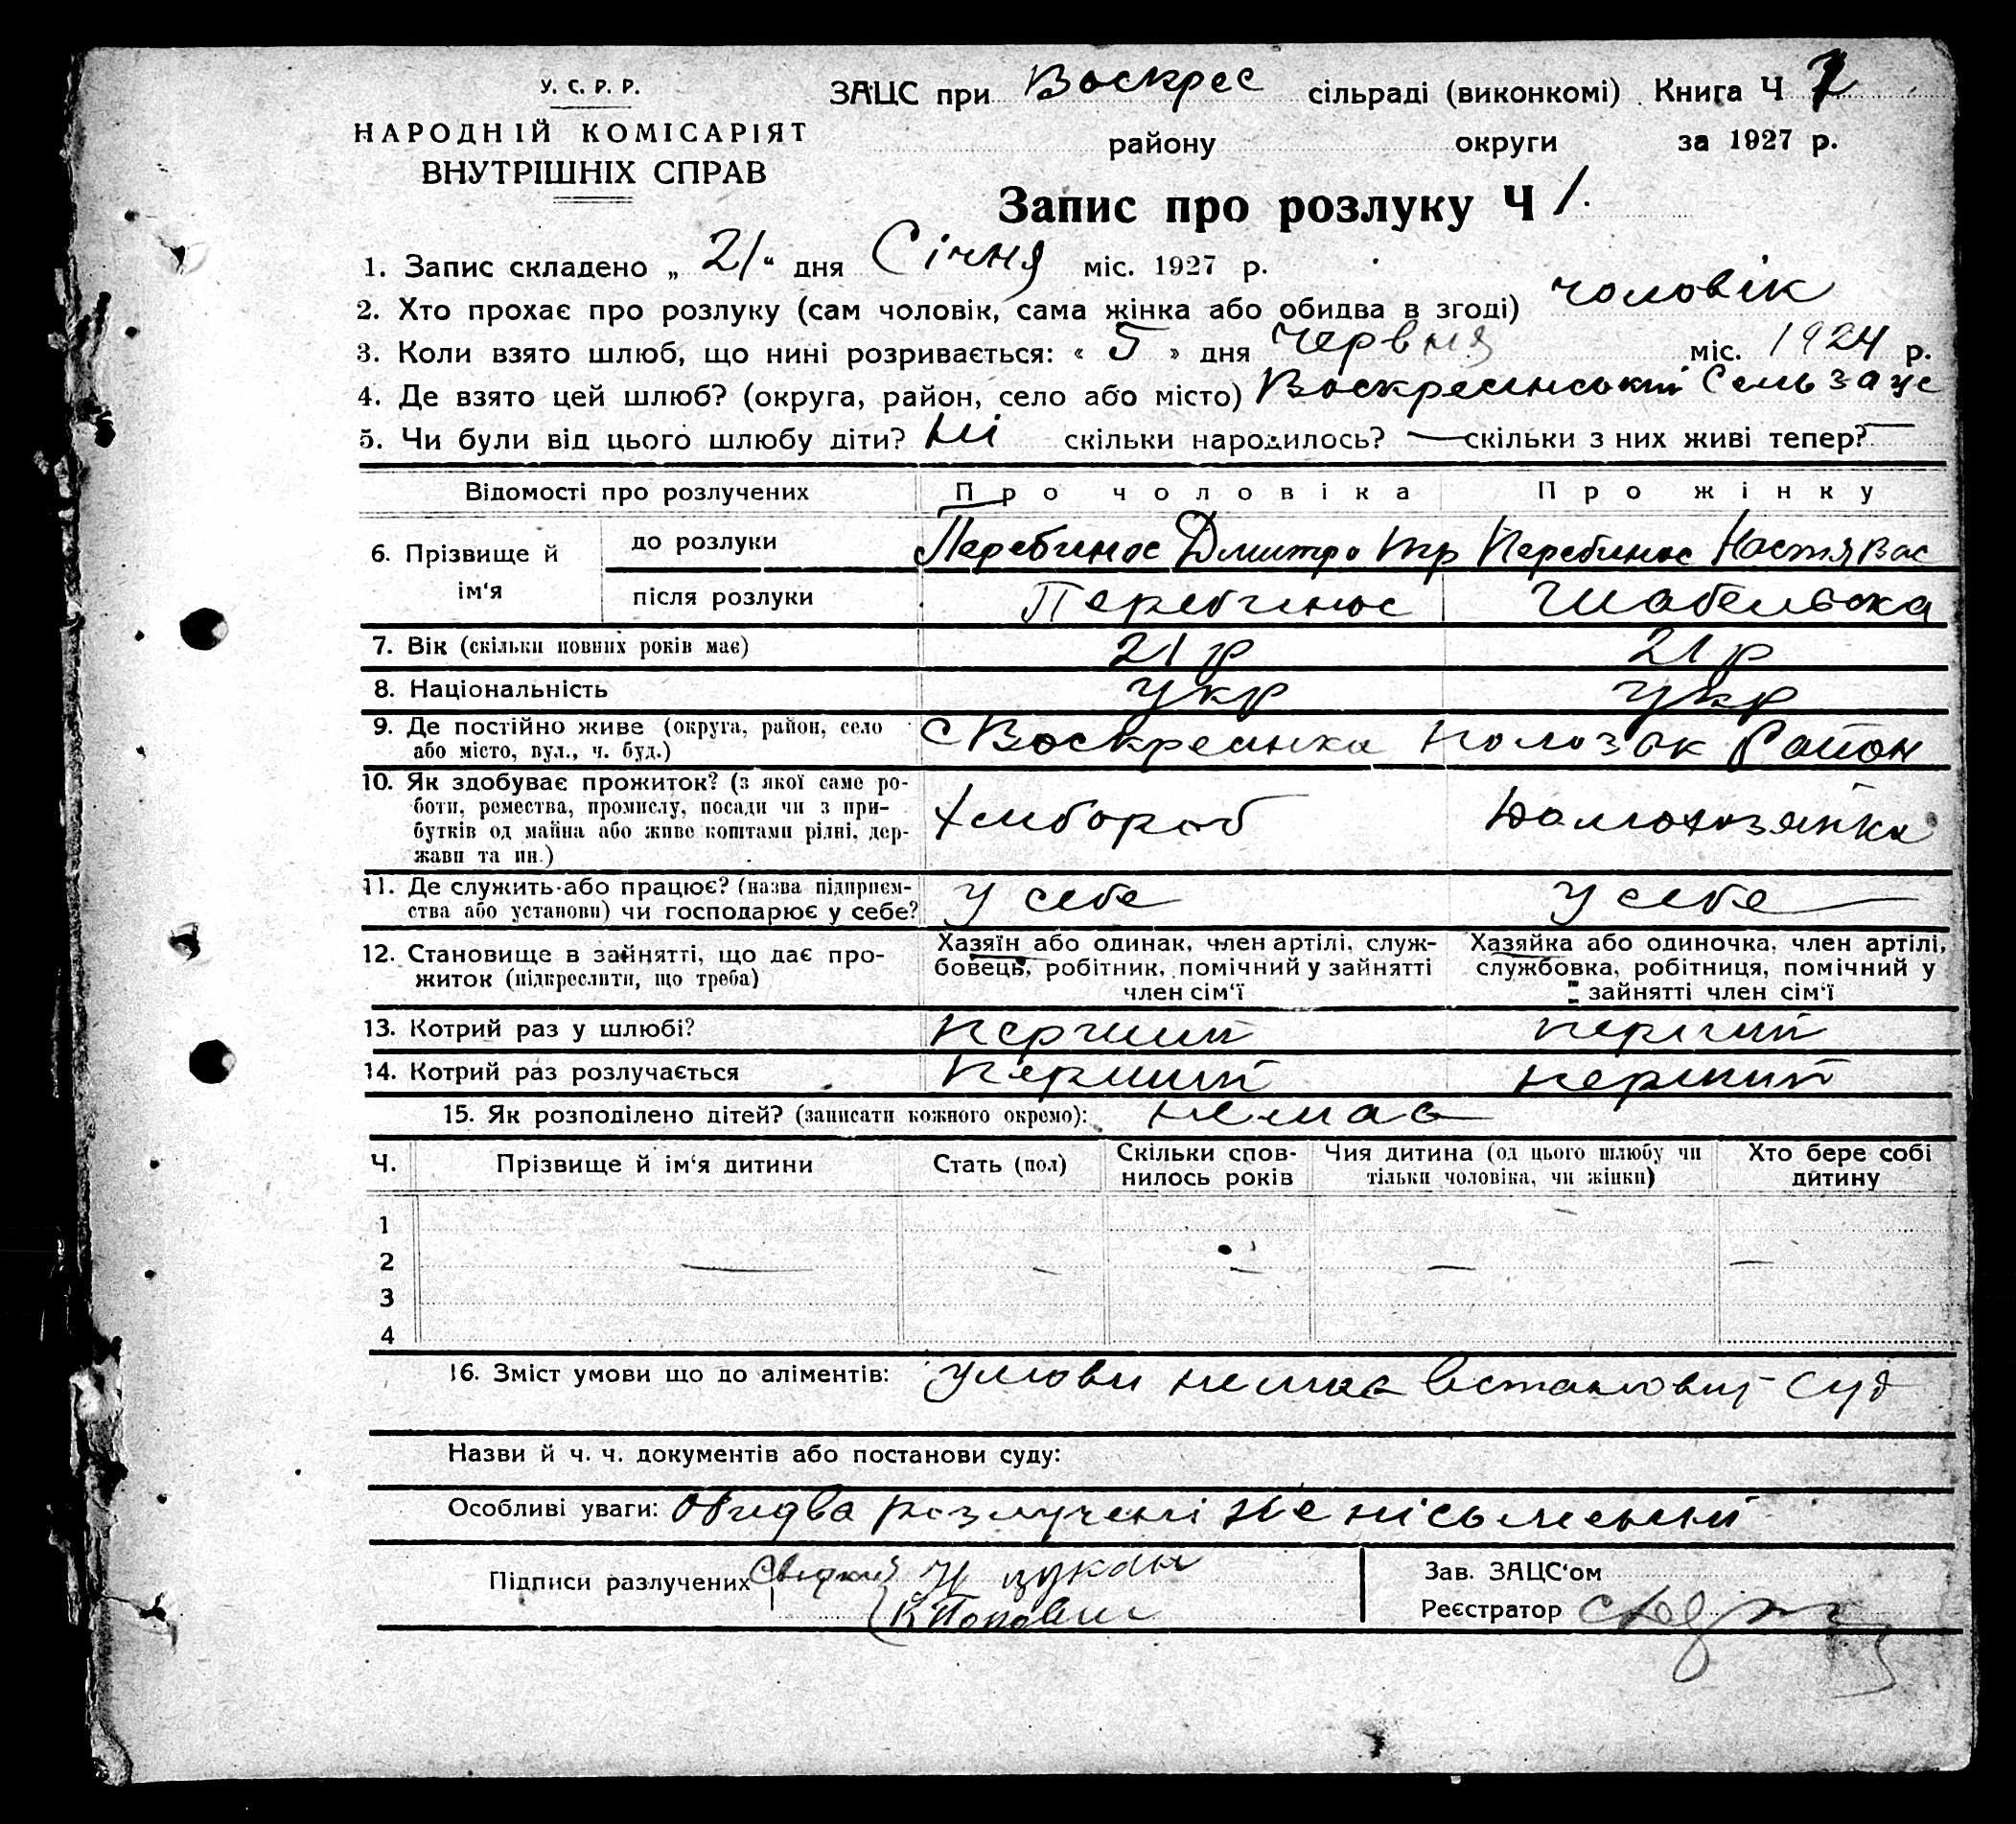 У. С. Р. Р.
НАРОДНІЙ КОМІСАРІЯТ
ВНУТРІШНІХ СПРАВ
ЗАЦС при Воскрес сільраді (виконкомі) Книга Ч
району округи за 1927 р.
Запис про розлуку Ч 1.
1. Запис складено „ 21 “ дня Січня міс. 1927 р.
2. Хто прохає про розлуку (сам чоловік, сама жінка або обидва в згоді) чоловік
3. Коли взято шлюб, що нині розривається: « 5 » дня червня міс. 1924 р.
4. Де взято цей шлюб? (округа, район, село або місто) Воскресинський Сельзацс
5. Чи були від цього шлюбу діти? Ні скільки народилось? — скільки з них живі тепер? —
Відомості про розлучених Про чоловіка Про жінку
6. Прізвище й ім‘я до розлуки Перебинос Дмитро Перебинос Настя Вас
після розлуки Перебинос Шабельська
7. Вік (скільки повних років має) 21 р 21 р
8. Національність укр укр
9. Де постійно живе (округа, район, село С Воскресинка район
або місто, вул., ч. буд.)
10. Як здобуває прожиток? (з якої саме ро-
боти, ремества, промислу, посади чи з при- Хлибороб Домохозяйка
бутків од майна або живе коштами рідні, дер-
жави та ин.)
11. Де служить або працює? (назва підприєм- у себе у себе
ства або установи) чи господарює у себе?
12. Становище в зайнятті, що дає про-
житок (підкреслити, що треба)
Хазяїн або одинак, член артілі, служ-
бовець, робітник, помічний у зайнятті
член сім‘ї
Хазяйка або одиночка, член артілі,
службовка, робітниця, помічний у
зайнятті член сім‘ї
13. Котрий раз у шлюбі? перший перший
14. Котрий раз розлучається перший перший
15. Як розподілено дітей? (записати кожного окремо): немає
Ч. Прізвище й ім‘я дитини Стать (пол) Скільки спов-
нилось років Чия дитина (од цього шлюбу чи
тільки чоловіка, чи жінки) Хто бере собі
дитину
1
2 — — — — —
3
4
16. Зміст умови що до аліментів: умови немає встановит суд
Назви й ч. ч. документів або постанови суду:
Особливі уваги: обидва розлучені не письменний
Підписи разлучених Свидки Н Цукан
К Попович
Зав. ЗАЦС‘ом
Реєстратор